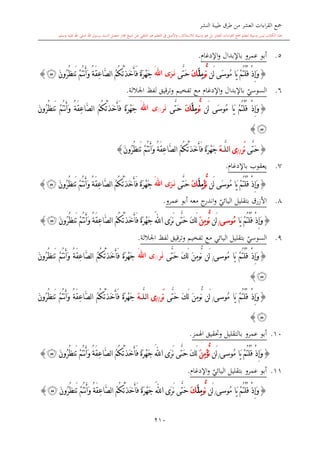 جمع القراءات العشر من طرق طيبة النشر
٥. أبو عمرو بالإبدال والإدغام.
﴿ وَإِذْ قُلْتُمْ يَا مُوسَى لَن نُّومِن لَّكَ حَتَّىٰ نَرَى اللهَ جَهْرَةً فَأَخَذَتْكُمُ الصَّاعِقَةُ وَأَنتُمْ تَنظُرُونَ ﴾
٦. السوسيّ بالإبدال والإدغام مع تفخيم وترقيق لفظ الجلالة.
﴿ وَإِذْ قُلْتُمْ يَا مُوسَى لَن نُّومِن لَّكَ حَتَّىٰ نَرَى اللهَ جَهْرَةً فَأَخَذَتْكُمُ الصَّاعِقَةُ وَأَنتُمْ تَنظُرُونَ
﴾
﴿ حَتَّىٰ نَرَى اللَّهَ جَهْرَةً فَأَخَذَتْكُمُ الصَّاعِقَةُ وَأَنتُمْ تَنظُرُونَ ﴾
٧. يعقوب بالإدغام.
﴿ وَإِذْ قُلْتُمْ يَا مُوسَى لَن نُّؤْمِن لَّكَ حَتَّىٰ نَرَى اللهَ جَهْرَةً فَأَخَذَتْكُمُ الصَّاعِقَةُ وَأَنتُمْ تَنظُرُونَ ﴾
٨. الأزرق بتقليل اليائيّ واندرج معه أبو عمرو.
﴿ وَإِذْ قُلْتُمْ يَا مُوسى لَن نُّومِنَ لَكَ حَتَّىٰ نَرَى اللهَ جَهْرَةً فَأَخَذَتْكُمُ الصَّاعِقَةُ وَأَنتُمْ تَنظُرُونَ ﴾
٩. السوسيّ بتقليل اليائي مع تفخيم وترقيق لفظ الجلالة.
﴿ وَإِذْ قُلْتُمْ يَا مُوسى لَن نُّومِنَ لَكَ حَتَّىٰ نَرَى اللهَ جَهْرَةً فَأَخَذَتْكُمُ الصَّاعِقَةُ وَأَنتُمْ تَنظُرُونَ
﴾
﴿ وَإِذْ قُلْتُمْ يَا مُوسى لَن نُّومِنَ لَكَ حَتَّىٰ نَرَى اللَّهَ جَهْرَةً فَأَخَذَتْكُمُ الصَّاعِقَةُ وَأَنتُمْ تَنظُرُونَ
﴾
١٠. أبو عمرو بالتقليل وتحقيق الهمز.
﴿ وَإِذْ قُلْتُمْ يَا مُوسى لَن نُّؤْمِنَ لَكَ حَتَّىٰ نَرَى اللهَ جَهْرَةً فَأَخَذَتْكُمُ الصَّاعِقَةُ وَأَنتُمْ تَنظُرُونَ ﴾
١١. أبو عمرو بتقليل اليائيّ والإدغام.
﴿ وَإِذْ قُلْتُمْ يَا مُوسى لَن نُّومِن لَّكَ حَتَّىٰ نَرَى اللهَ جَهْرَةً فَأَخَذَتْكُمُ الصَّاعِقَةُ وَأَنتُمْ تَنظُرُونَ ﴾
-٢١٠